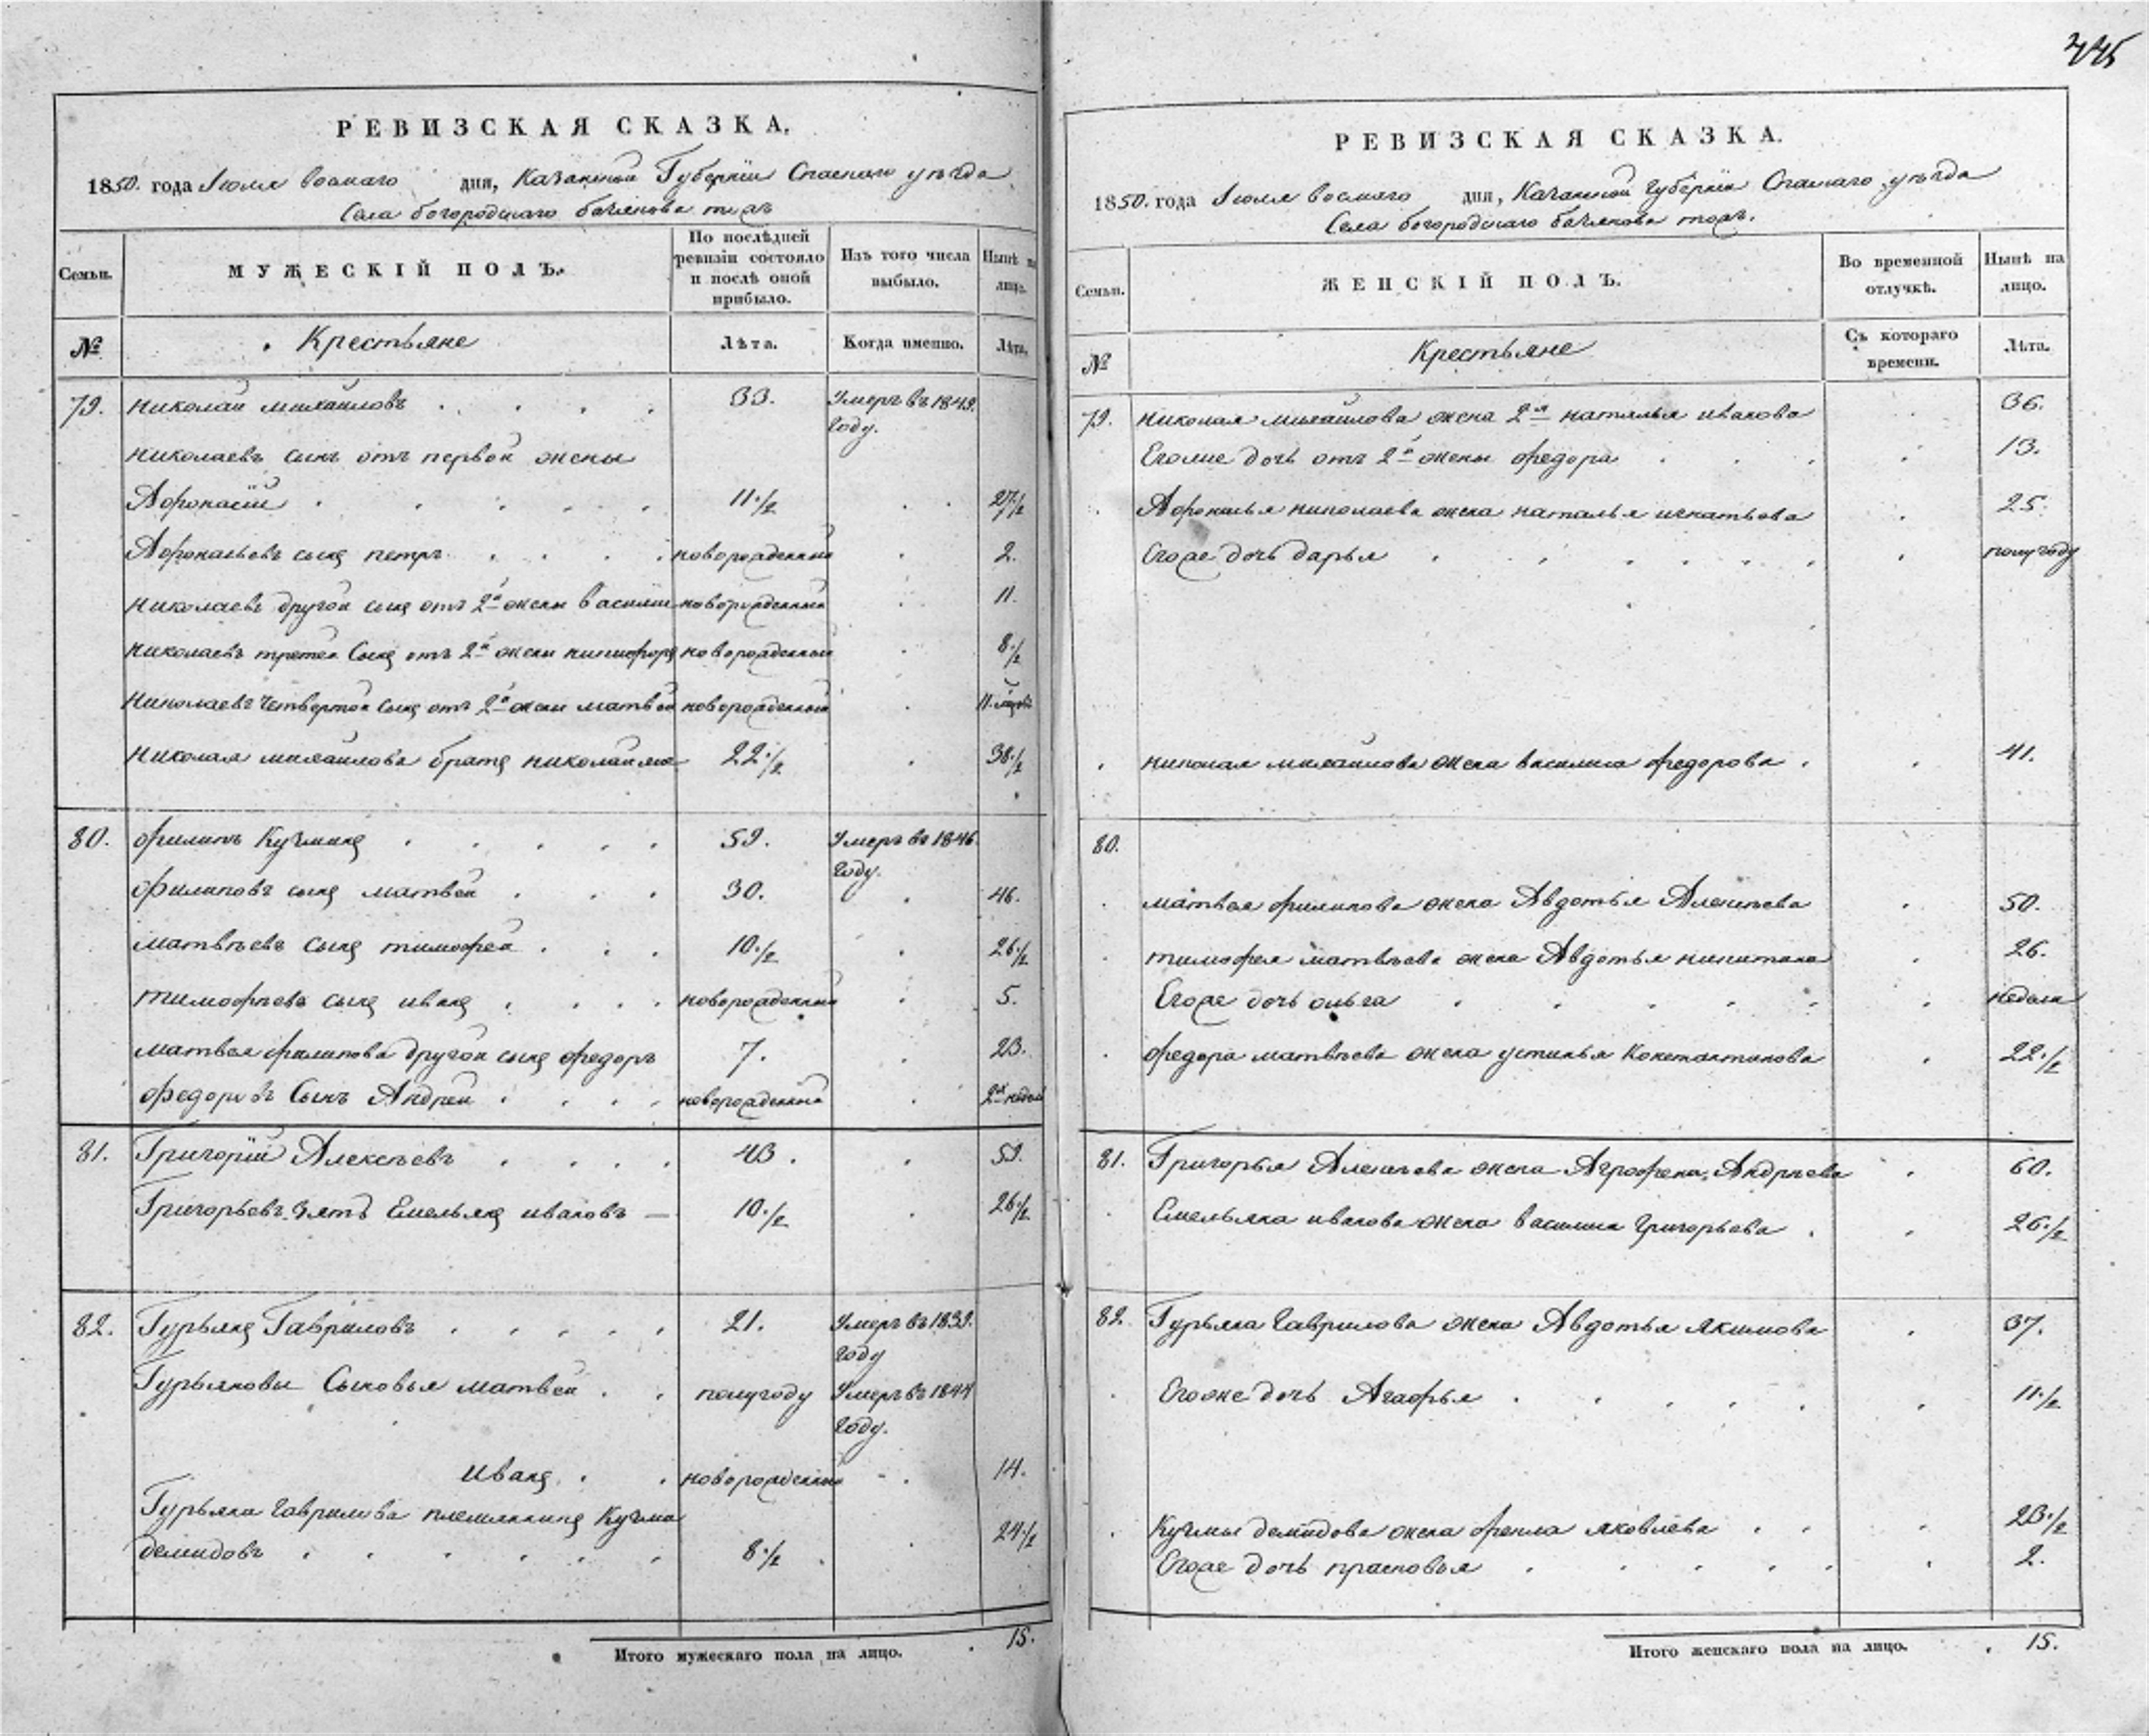 445
РЕВИЗСКАЯ СКАЗКА.
1850. года Июля восмаго дня, Казанской Губернiи Спаского уѣзда
Села богородскаго
Семьи.
МУЖЕСКIЙ ПОЛЪ.
По послѣдней ревизiи состояло и послѣ оной прибыло.
Изъ того числа выбыло.
Нынѣ на лицо.
№
Крестьяне
Лѣта.
Когда именно.
Лѣта.
79. николай михайловъ 33. Умеръ въ 1849.
году.
николаевъ сынъ отъ первой жены
Афонасiй 11.1/2 27.1/2
Афонасьевъ сынъ петръ новорожденный 2.
николаевъ другой сынъ отъ 2й жены василiй новорожденный 11.
николаевъ третей Сынъ отъ 2й жены никифоръ новорожденный 8.1/2
николаевъ четвертой сынъ отъ 2й жены матвей новорожденный 11.
николая михайлова братъ николай же 22.1/2 38.1/2
80. филипъ Кузминъ 59. Умеръ въ 1846.
году.
филиповъ сынъ матвей 30. 46.
матвѣевъ сынъ тимофей 10.1/2 26.1/2
тимофѣевъ сынъ иванъ новорожденный 5.
матвея филипова другой сынъ федоръ 7. 23.
федоровъ Сынъ Андрей новорожденный 2х недел
81. Григорiй Алексѣевъ 43. 59.
Григорьевъ зять Емельянъ ивановъ — 10.1/2 26.1/2
82. Гурьянъ Гавриловъ 21. Умеръ въ 1839.
году
Гурьяновы Сыновья матвей полугоду Умеръ въ 1844
году.
Иванъ новорожденный 14.
Гурьяна Гаврилова племянникъ Кузма
демидовъ 8.1/2 24.1/2
Итого мужескаго пола на лицо. 15.
РЕВИЗСКАЯ СКАЗКА.
1850. года Июля восмаго дня, Казанской Губернiи Спаскаго уѣзда
Села богородскаго
Семьи.
ЖЕНСКIЙ ПОЛЪ.
Во временной отлучкѣ.
Нынѣ на лицо.
№
Крестьяне
Съ котораго времени.
Лѣта.
79. николая михайлова жена 2я наталья иванова 36.
Егоже дочь отъ 2й жены федора 13.
Афонасья николаева жена наталья игнатьева 25.
Егоже дочь дарья полугоду
николая михайлова жена василиса федорова 41.
80.
матвея филипова жена Авдотья Алексѣева 50.
тимофея матвѣева жена Авдотья никитина 26.
Егоже дочь ольга неделя
федора матвѣева жена устинья Константинова 22.1/2
81. Григорья Алексѣева жена Аграфена Андрѣева 60.
Емельяна иванова жена василиса Григорьева 26.1/2
82. Гурьяна Гаврилова жена Авдотья якимова 37.
Егоже дочь Агафья 11.1/2
Кузмы демидова жена фекла яковлева 23.1/2
Егоже дочь прасковья 2.
Итого женскаго пола на лицо. 15.